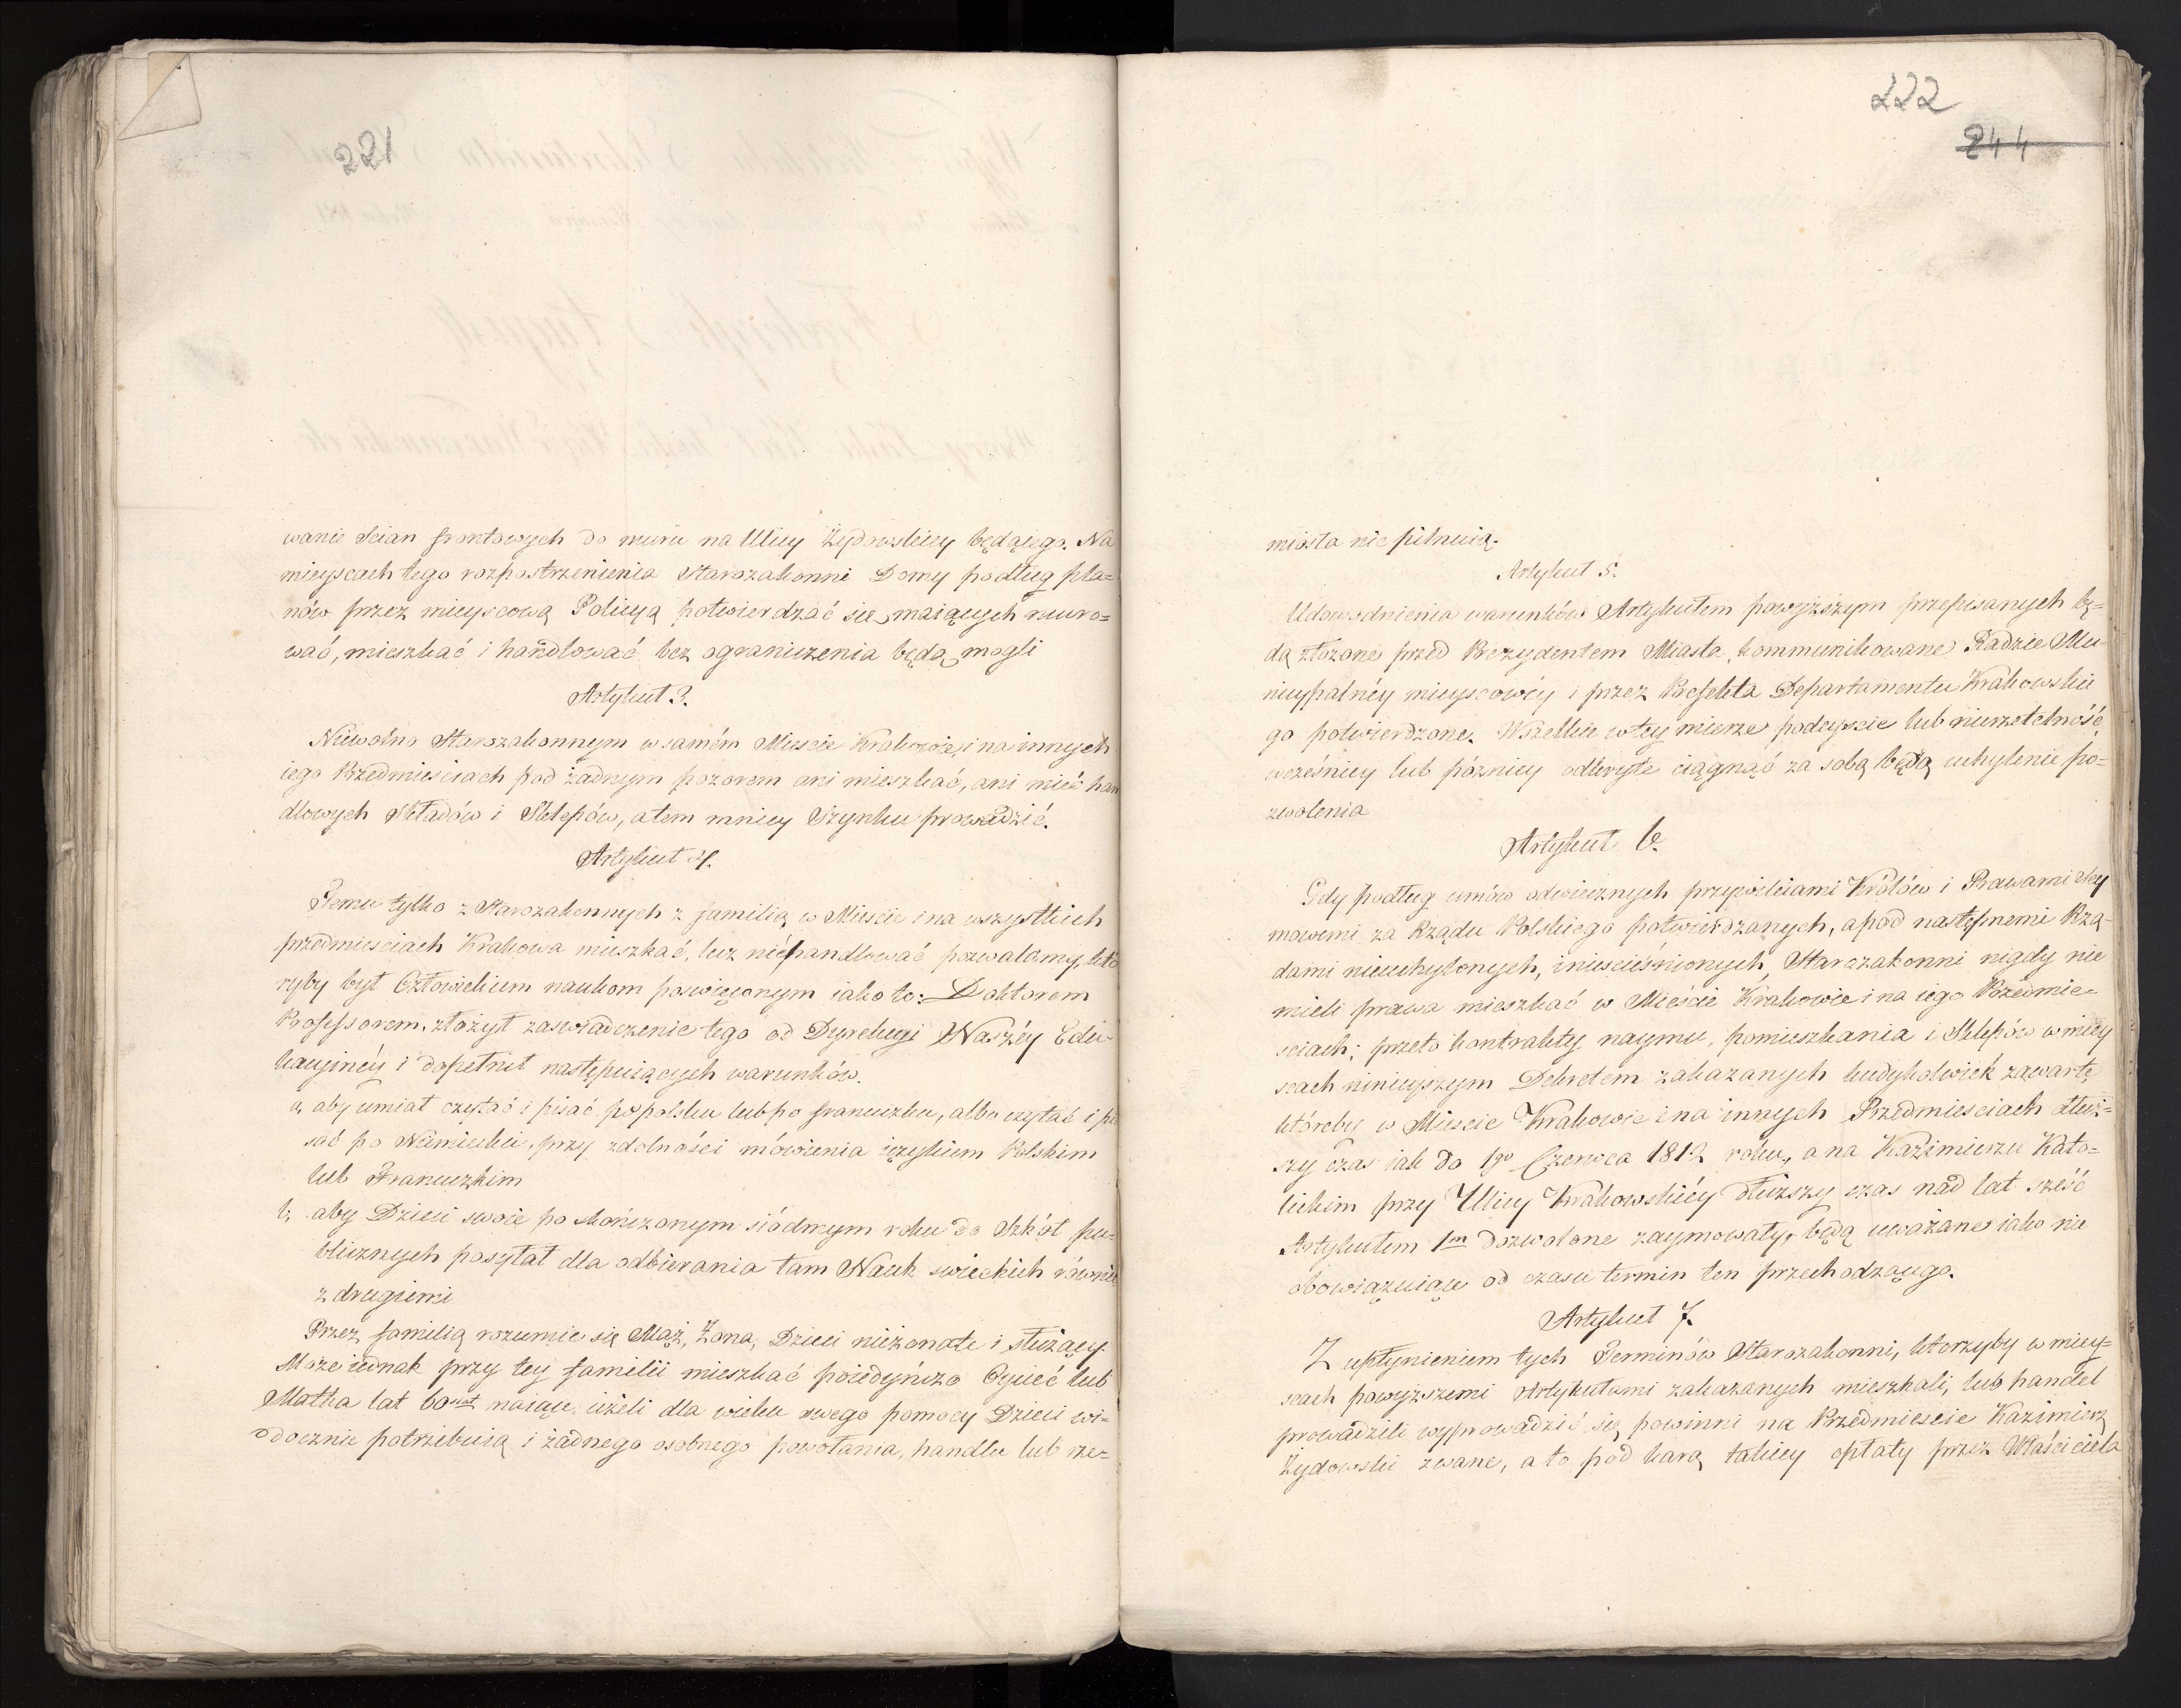 221
wanie scian frontowych do muru na Ulicy Żydowskiey będącego. Na
mieyscach tego rozpostrzenienia Starozakonni Domy podług pla=
nów przez mieyscową Policyą potwierdzać się maiących muro=
wać, mieszkać i handlować bez ograniczenia będą mogli
Artykuł 3.
Niewolno Starozakonnym w samém Mieście Krakowie i na innych
iego Przedmieściach pod żadnym pozorem ani mieszkać, ani mieć han
dlowych Składów i Sklepów, a tem mniey Szynku prowadzić.
Artykuł 4.
Temu tylko z Starozakonnych z familią w Mieście i na wszystkich
przedmieściach Krakowa mieszkać, lecz nie handlować pozwalamy, któ
ryby był Człowiekiem naukom poswięconym iako to: Doktorem
Professorem, złożył zaswiadczenie tego od Dyrekcyi Naszéy Edu=
kacyinéy i dopełnił następuiących warunków.
a, aby umiał czytać i pisać po polsku lub po francuzku, albo czytać i pi
sać po Niemiecku, przy zdolności mówienia ięzykiem Polskim
lub Francuzkim
b, aby Dzieci swoie po skończonym siódmym roku do Szkół pu=
blicznych posyłał dla odbierania tam Nauk swieckich równie
z drugiemi
Przez familią rozumie się Mąż, Żona, Dzieci nieżonate i służący.
Może iednak przy tey familii mieszkać poiedyńczo Oyciec lub
Matka lat 60 maiące, ieżeli dla wieku swego pomocy Dzieci wi=
docznie potrzebuią i żadnego osobnego powołania, handlu lub rze=
222
244
miosła nie pilnuią.
Artykuł 5.
Udowodnienia warunków Artykułem powyższym przepisanych bę=
dą złożone przed Prezydentem Miasta, kommunikowane Radzie Mu=
nicypalnéy mieyscowéy i przez Prefekta Departamentu Krakowskie
go potwierdzone. Wszelkie w tey mierze podeyscie lub nierzetelność
wcześniey lub późniey odkryte ciągnąć za sobą będą uchylenie po=
zwolenia
Artykuł 6.
Gdy podług umów odwiecznych przywileiami Królów i Prawami Sey
mowemi za Rządu Polskiego potwierdzanych, a pod następnemi Rzą=
dami nieuchylonych, i niescieśnionych, Starozakonni nigdy nie
mieli prawa mieszkać w Mieście Krakowie i na iego Przedmie=
sciach; przeto kontrakty naymu, pomieszkania i Sklepów w miey
scach ninieyszym Dekretem zakazanych kiedykolwiek zawarte
któreby w Mieście Krakowie i na innych Przedmiesciach dłuż=
szy czas iak do 1go Czerwca 1812 roku, a na Kazimierzu Kato=
lickim przy Ulicy Krakowskiéy dłuższy czas nad lat sześć
Artykułem 1m dozwolone zaymowały, będą uważane iako nie
obowiązuiące od czasu termin ten przechodzącego.
Artykuł 7.
Z upłynieniem tych Terminów Starozakonni, którzyby w miey=
scach powyższemi Artykułami zakazanych mieszkali, lub handel
prowadzili wyprowadzić się powinni na Przedmieście Kazimierz
Żydowski zwane, a to pod karą takiey opłaty przez Właściciela